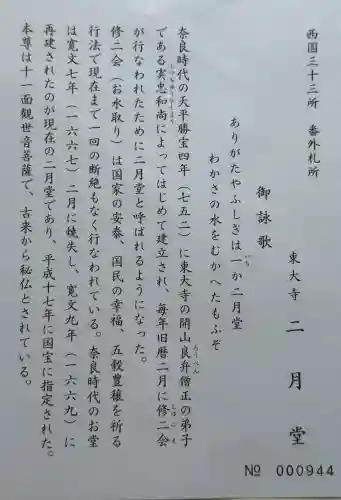 西国三十三所　番外札所
東大寺　二月堂
御詠歌
ありがたやふしぎは一か二月堂
いち
わかさの水をむかへたもふぞ
奈良時代の天平勝宝四年（七五二）に東大寺の開山良弁僧正の弟子
ろうべん
である実忠和尚によってはじめて建立され、毎年旧暦二月に修二会
じっちゅうかしょう
しゅにえ
が行なわれたために二月堂と呼ばれるようになった。
修二会（お水取り）は国家の安泰、国民の幸福、五穀豊穣を祈る
行法で現在まで一回の断絶もなく行なわれている。奈良時代のお堂
は寛文七年（一六六七）二月に焼失し、寛文九年（一六六九）に
再建されたのが現在の二月堂であり、平成十七年に国宝に指定された。
本尊は十一面観世音菩薩で、古来から秘仏とされている。
№ 000944